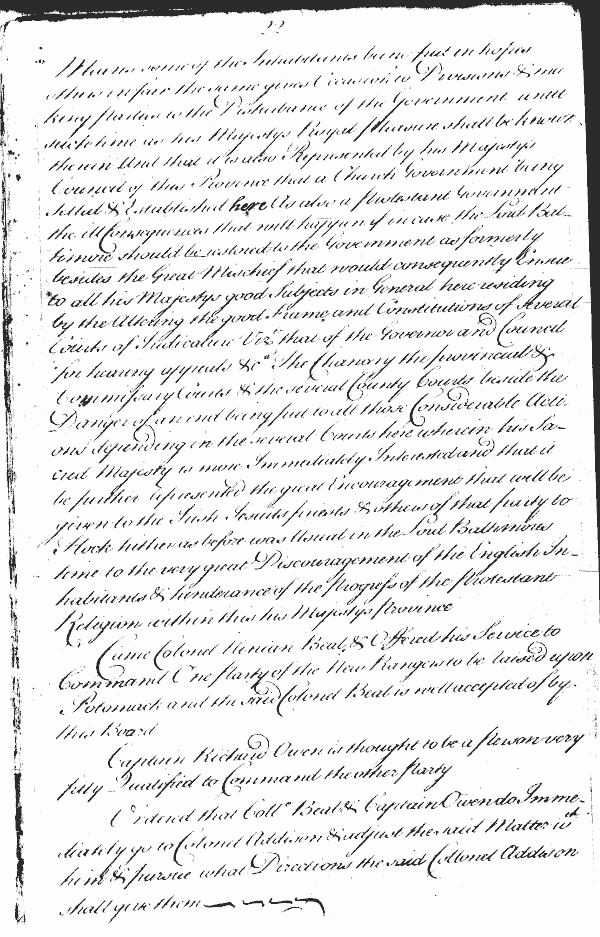 Whereas some of the Inhabitants being put in hopes
others in fear the same gives Occasion to Divisions & ma
king Parties to the Disturbance of the Government untill
such time as his Majestys Royal Pleasure shall be known
therein And that it is also Represented by his Majestys
Council of this Province that a Church Government being
Setled & Established here As also a Protestant Government
the ill Consequences that will happen if in case the Lord Bal-
timore should be restored to the Government as formerly
besides the Great Mischief that would consequently Ensue
to all his Majestys good Subjects in General here residing
by the Altering the good Frame and Constitutions of several
Courts of Judicature Vizt that of the Governor and Council
for hearing appeals &ca The Chancry the provincial &
Commissary Courts & the several County Courts beside the
Danger of an end being put to all those Considerable Acti-
ons depending in the several Courts here wherein his Sa-
cred Majesty is more Immediately Interested and that it
be further represented the great Encouragement that will be
given to the Irish Jesuits priests & others of that party to
Flock hither as before was Usual in the Lord Baltimores
time to the very great Discouragement of the English In-
habitants & hinderance of the Progress of the Protestant
Religion within this his Majestys Province
Came Colonel Ninian Beal, & Offered his Service to
Command One Party of the New Rangers to be raised upon
Potomack and the said Colonel Beal is well accepted of by
this Board
Captain Richard Owen is thought to be a Person very
fitly Qualified to Command the other Party
Ordered that Collo Beal & Captain Owen do Imme-
diately go to Colonel Addison & adjust the said Matter with
him & pursue what Directions the said Collonel Addison
shall give them